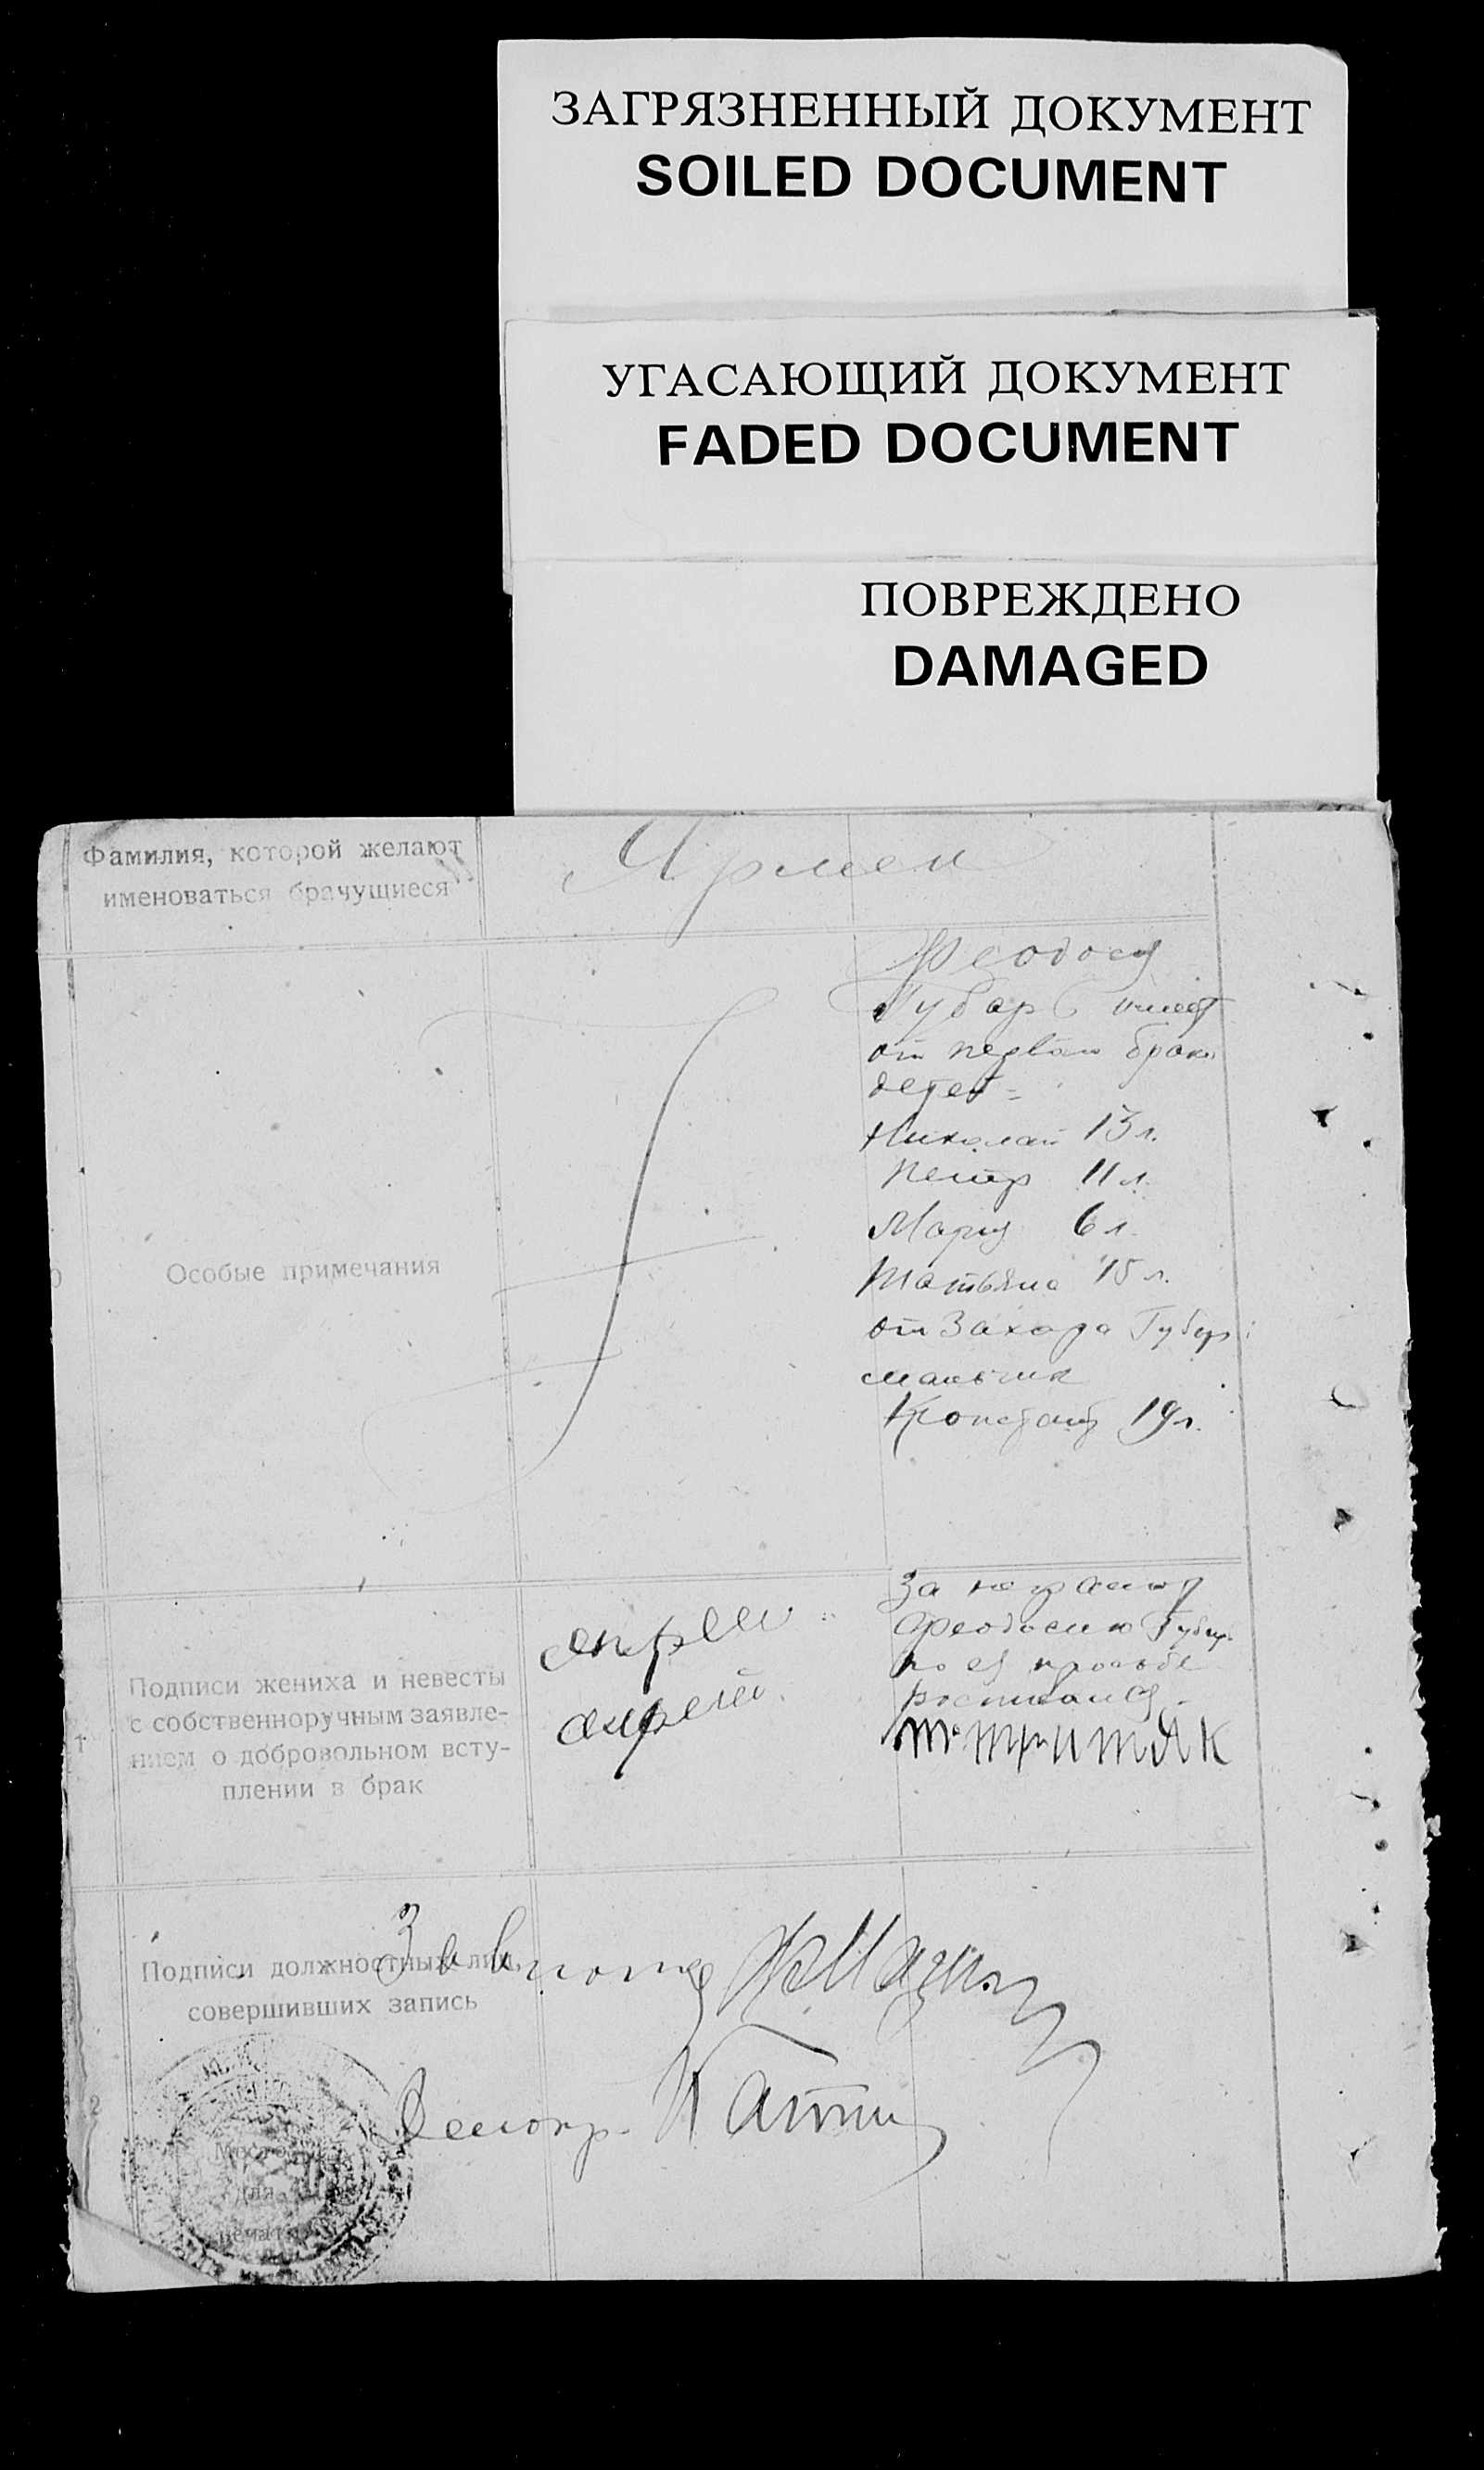 ЗАГРЯЗНЕННЫЙ ДОКУМЕНТ
SOILED DOCUMENT
УГАСАЮЩИЙ ДОКУМЕНТ
FADED DOCUMENT
ПОВРЕЖДЕНО
DAMAGED
Фамилия, которой желают
именоваться брачущиеся
Особые примечания
Феодося
Губарь имеет
от первого брака
детей =
Николай 13 л.
Петр 11 л.
Мария 6 л.
Татьяна 15 л.
от Захара Губар
мальчик
19 л.
Подписи жениха и невесты
с собственноручным заявле-
нием о добровольном всту-
плении в брак
За неграмот
Феодосию Губар.
по ея просьбе
росписался
Подписи должностных лиц,
совершивших запись
Место
для
печати